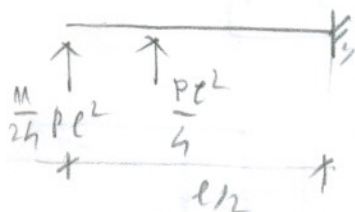 11/24 Pl² Pl²/4
l/2